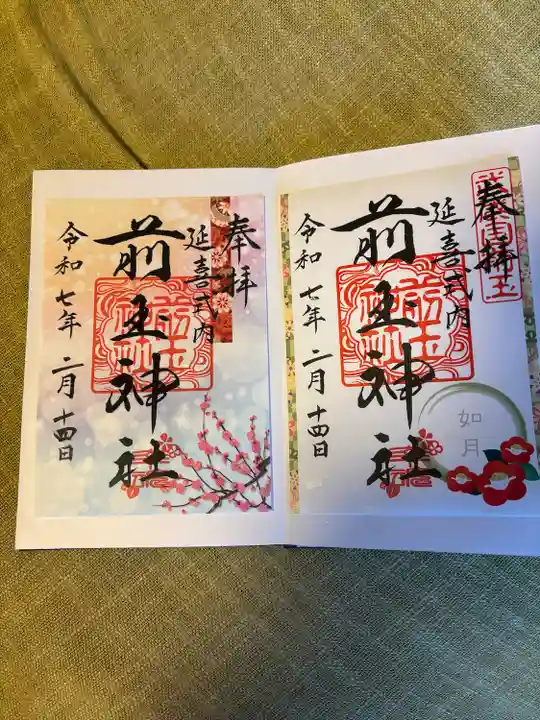 奉拝
延喜式内
前玉神社
令和七年二月十四日
奉拝
延喜式内
前玉神社
令和七年二月十四日
如月